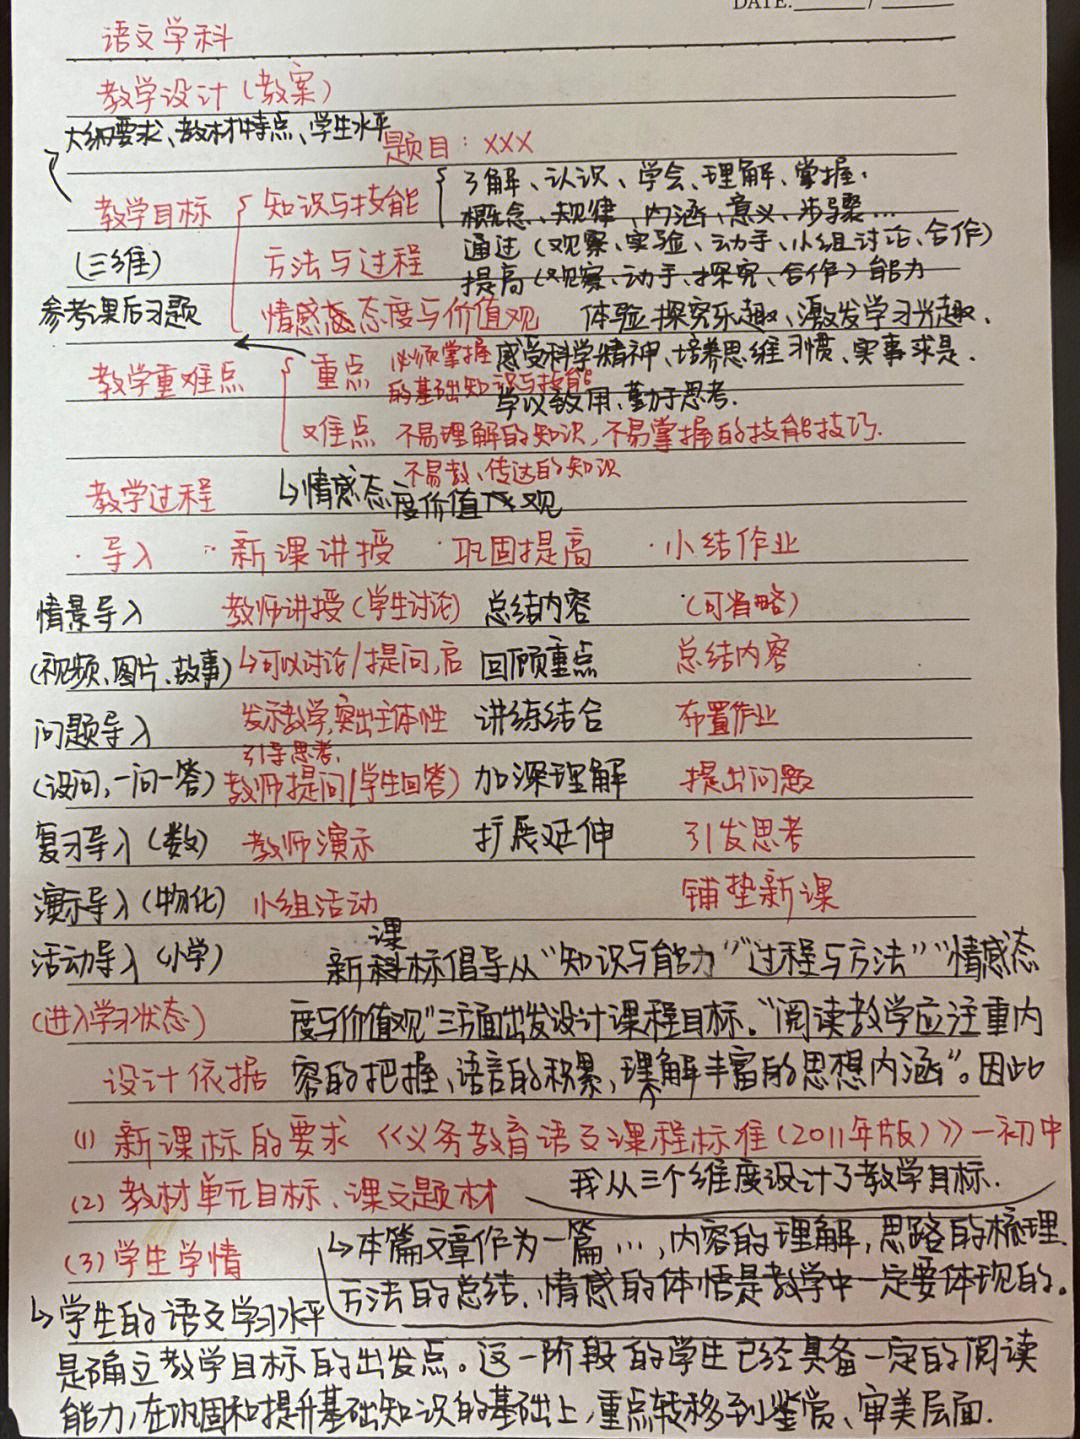 DATE:
语文学科
教学设计(教案)
大纲要求、教材特点、学生水平
题目：XXX
教学目标 知识与技能 了解、认识、学会、理解、掌握.
概念、规律、内涵、意义、步骤…
(三维) 方法与过程 通过(观察、实验、动手、小组讨论、合作)
提高(观察、动手、探究、合作)能力
参考课后习题 情感态度与价值观 体验探究乐趣、激发学习兴趣、
感受科学精神、培养思维习惯、实事求是.
学以致用、勤于思考.
教学重难点 重点 必须掌握
的基础知识与技能
难点 不易理解的知识,不易掌握的技能技巧.
不易教、传达的知识
↳情感态度价值观
教学过程
·导入 ·新课讲授 ·巩固提高 ·小结作业
情景导入 教师讲授(学生讨论) 总结内容 (可省略)
(视频、图片、故事) ↳可以讨论/提问,启 回顾重点 总结内容
问题导入 发示教学,突出主体性 讲练结合 布置作业
引导思考.
(设问,一问一答) 教师提问/学生回答) 加深理解 提出问题
复习导入(数) 教师演示 扩展延伸 引发思考
演示导入(物化) 小组活动 铺垫新课
活动导入(小学) 新课标倡导从“知识与能力”“过程与方法”“情感态
(进入学习状态) 度与价值观”三方面出发设计课程目标。“阅读教学应注重内
设计依据 容的把握、语言的积累,理解丰富的思想内涵”。因此
(1) 新课标的要求《义务教育语文课程标准(2011年版)》—初中
我从三个维度设计了教学目标.
(2) 教材单元目标、课文题材
↳本篇文章作为一篇…,内容的理解,思路的梳理
(3) 学生学情 方法的总结、情感的体悟是教学中一定要体现的。
↳学生的语文学习水平
是确立教学目标的出发点。这一阶段的学生已经具备一定的阅读
能力,在巩固和提升基础知识的基础上,重点转移到鉴赏、审美层面.